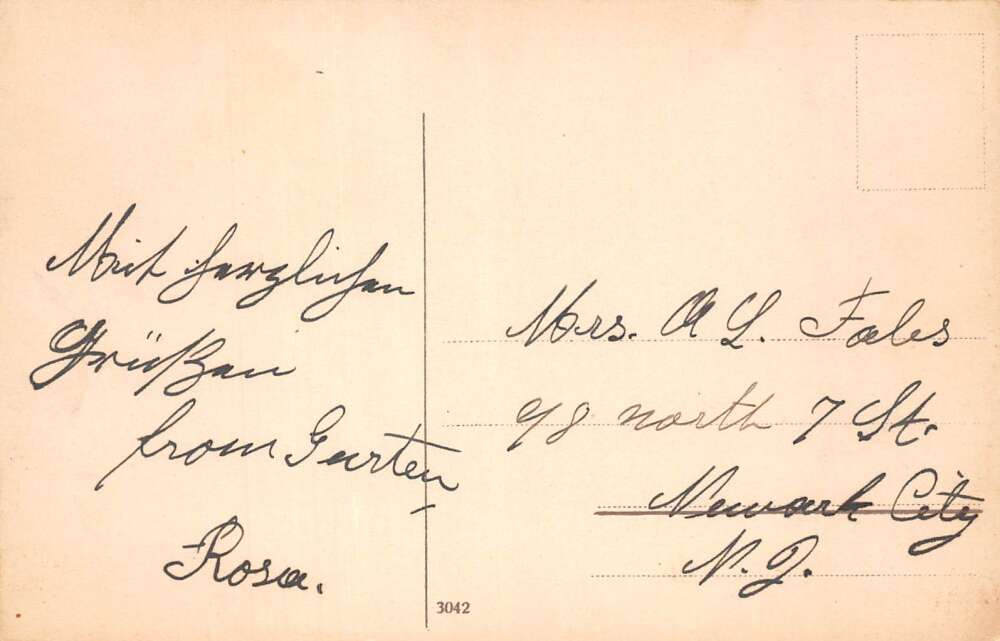 Mit herzlichen
Grüßen
from Gurten
Rosa.
Mrs. A L. Fales
98 north 7 St.
Newark City
N. J.
3042